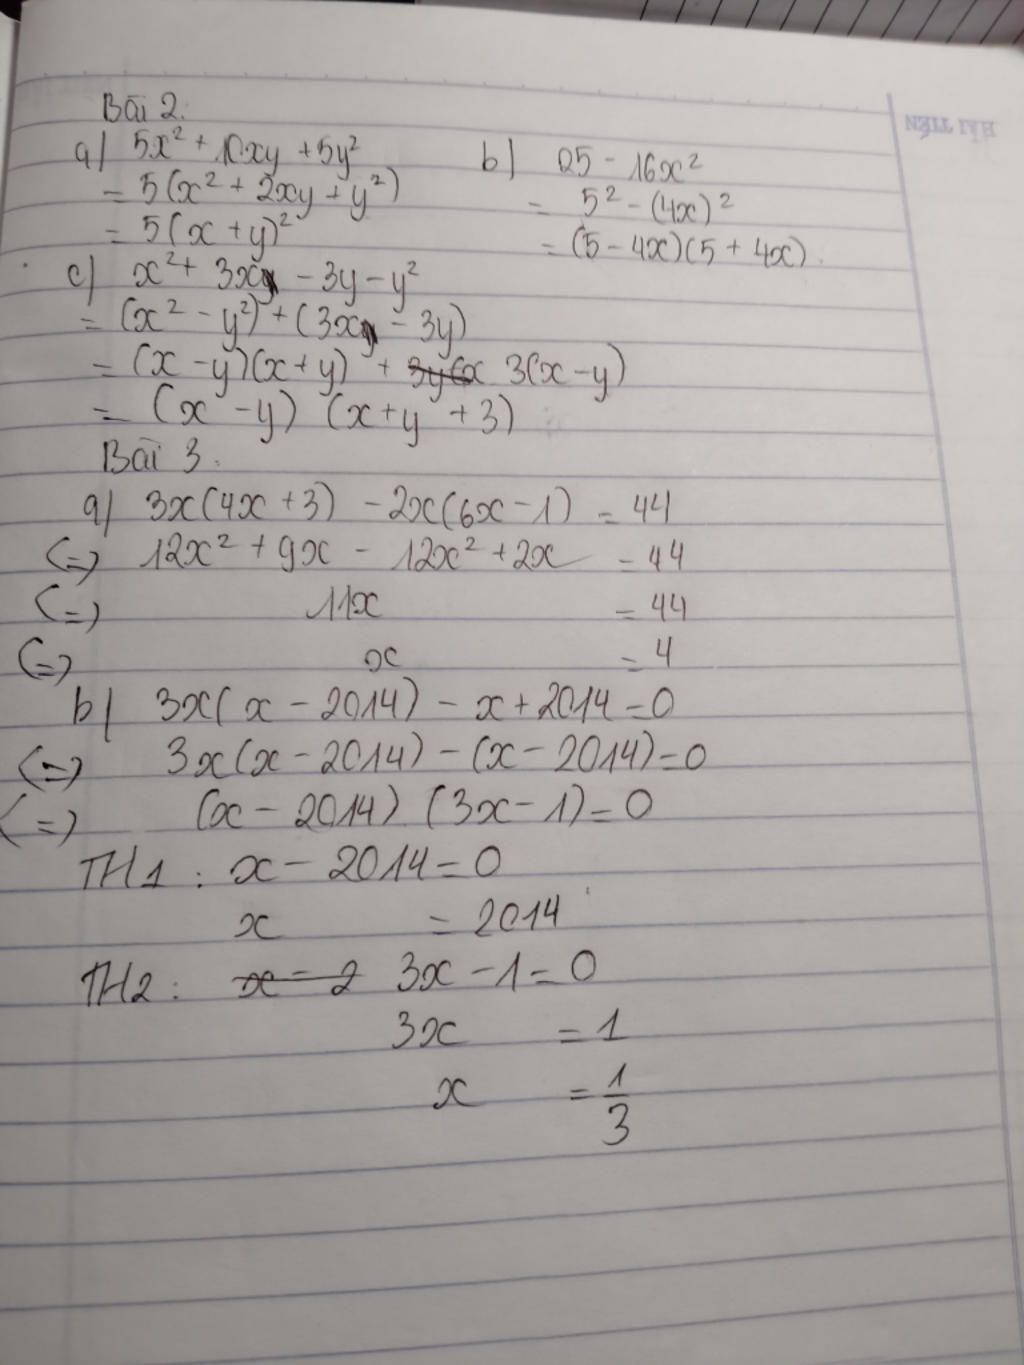 Bài 2:
a) 5x² + 10xy + 5y²
= 5(x² + 2xy + y²)
= 5(x + y)²
b) 25 - 16x²
= 5² - (4x)²
= (5 - 4x)(5 + 4x).
c) x² + 3x - 3y - y²
= (x² - y²) + (3x - 3y)
= (x - y)(x + y) + 3(x - y)
= (x - y) (x + y + 3)
Bài 3.
a) 3x(4x + 3) - 2x(6x - 1) = 44
(=) 12x² + 9x - 12x² + 2x = 44
(=) 11x = 44
(=) x = 4
b) 3x(x - 2014) - x + 2014 = 0
(=) 3x(x - 2014) - (x - 2014) = 0
(=) (x - 2014) (3x - 1) = 0
TH1: x - 2014 = 0
x = 2014
TH2: x - 2 3x - 1 = 0
3x = 1
x = 1/3
HẢI TIẾN